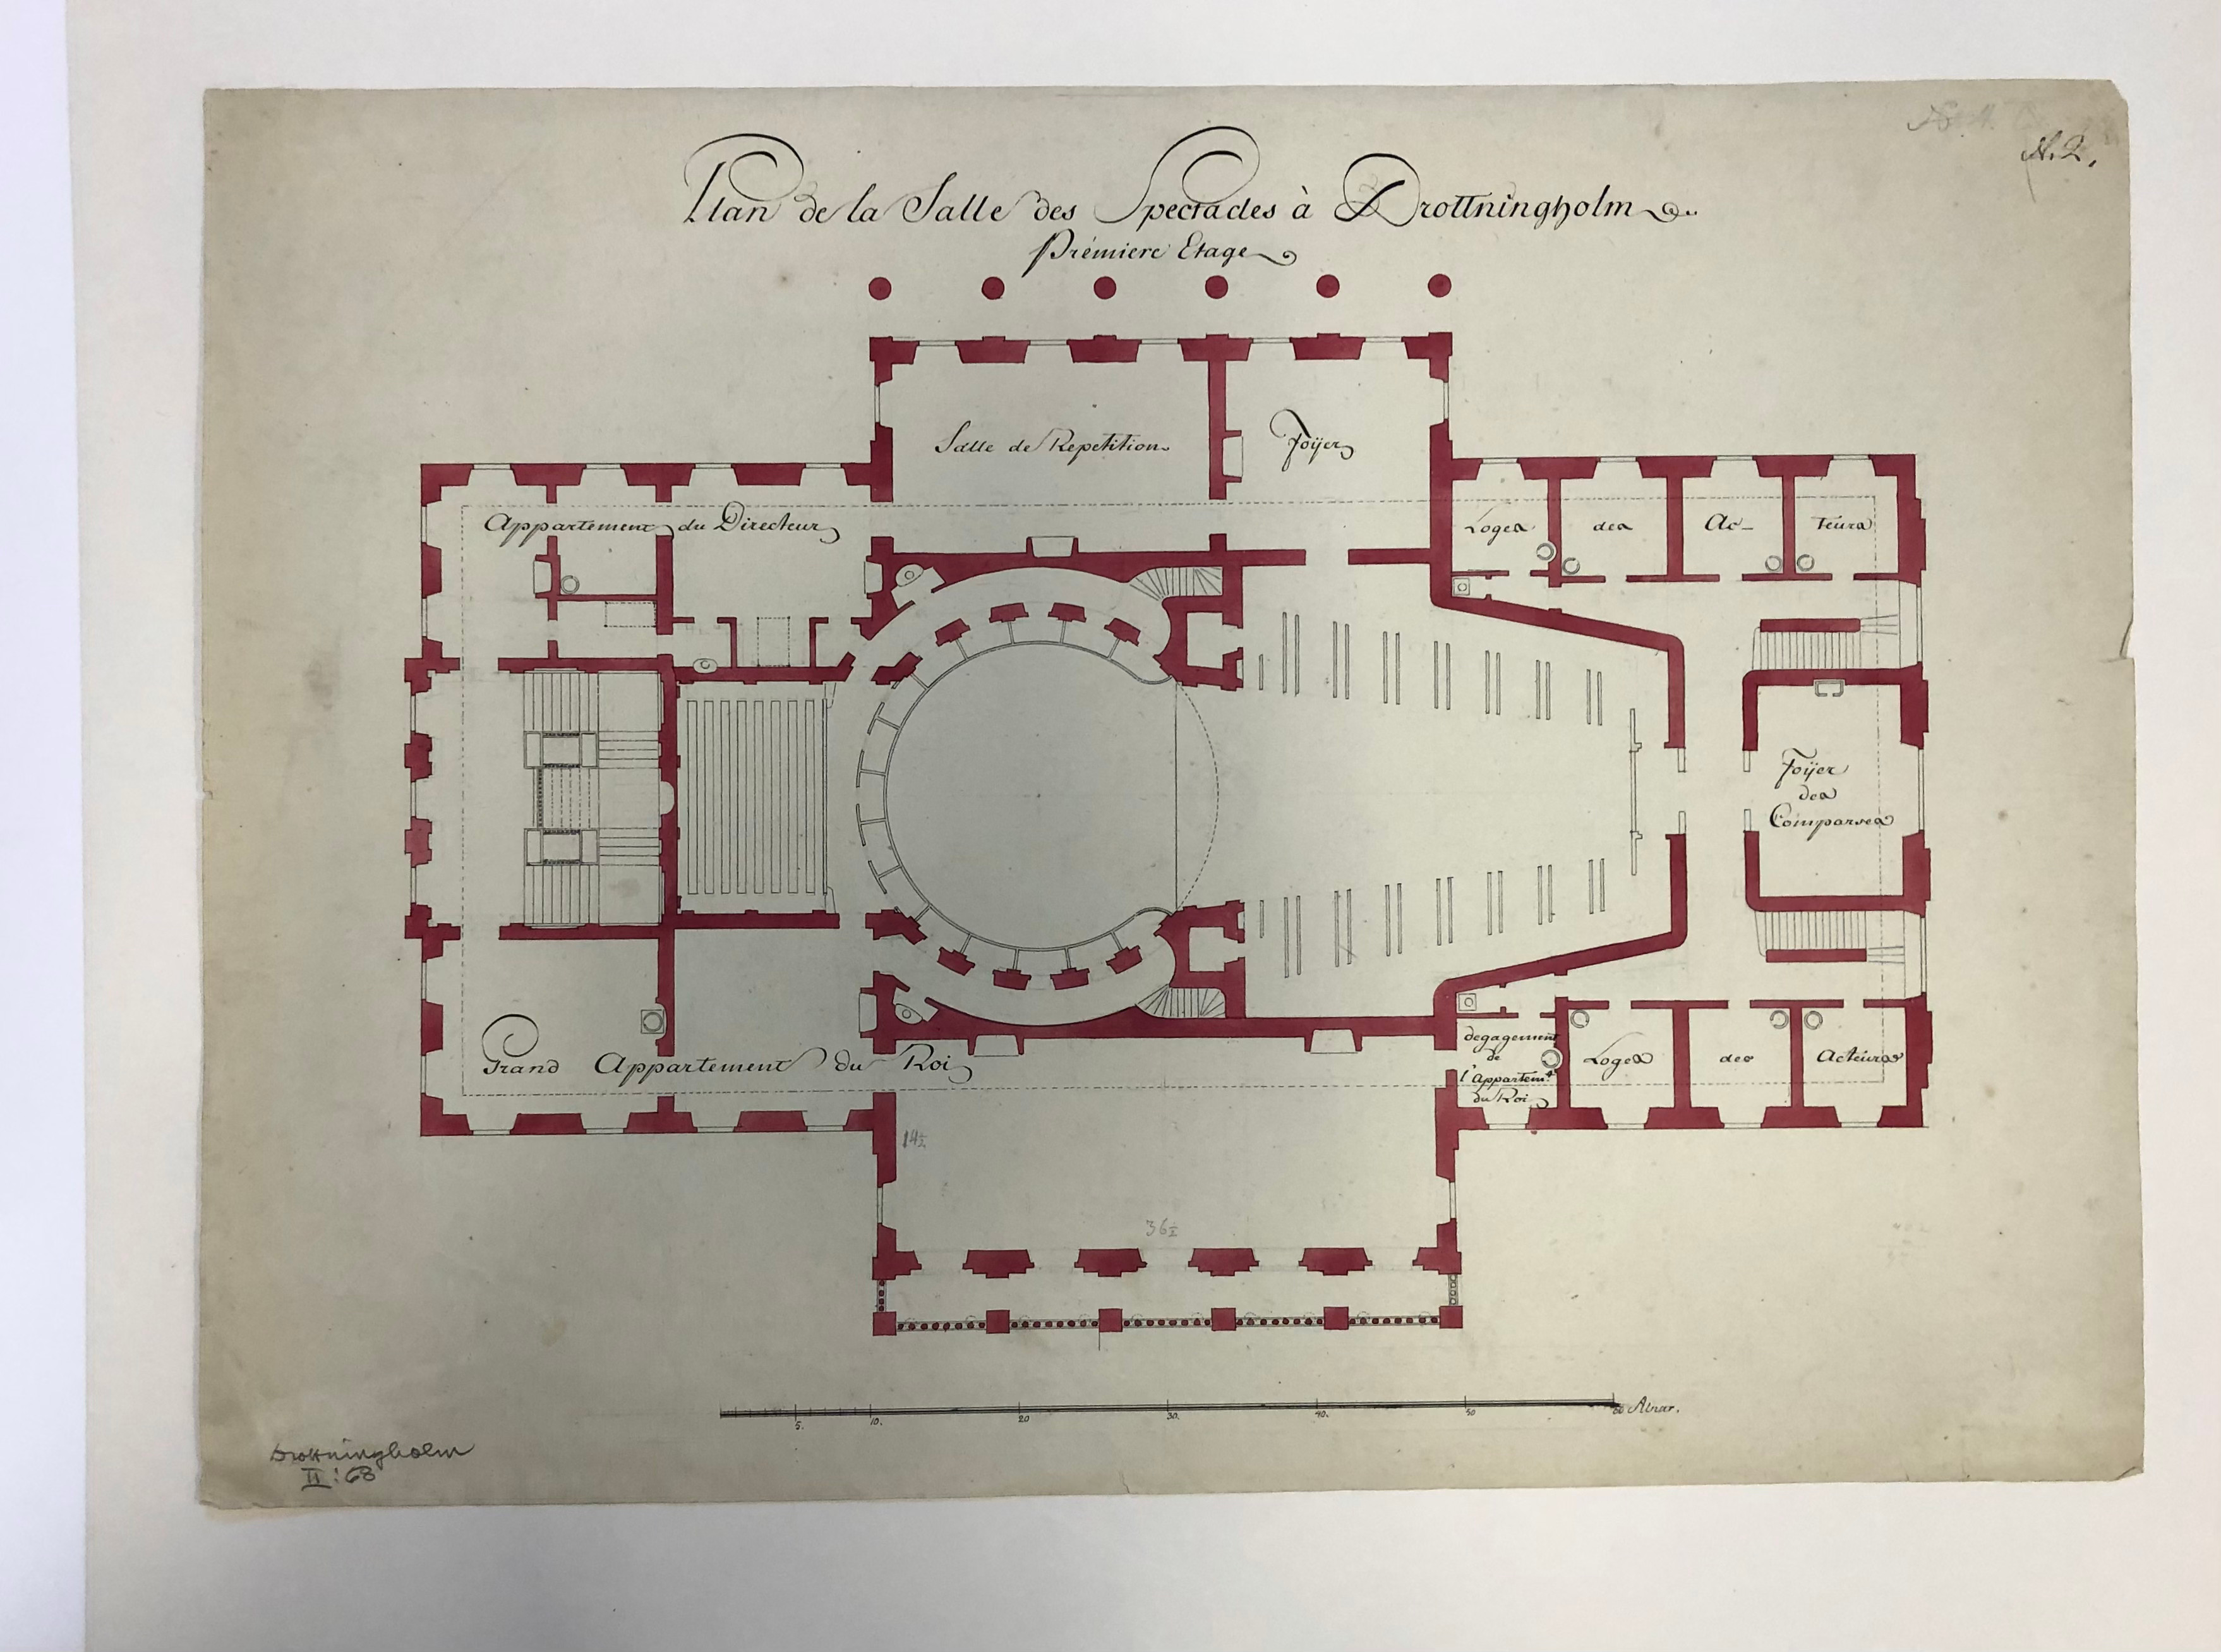 N. 2.
Plan de la Salle des Spectacles à Drottningholm
Prémiere Etage
Salle de Repetition
Foÿer
Appartement du Directeur
Loges des Ac-teurs
Foÿer
des
Comparses
Grand Appartement du Roi
degagement
de
l'Appartemt.
du Roi
Loges des Acteurs
14½
36½
5. 10. 20 30. 40. 50 60 Alnar.
Drottningholm
II:68